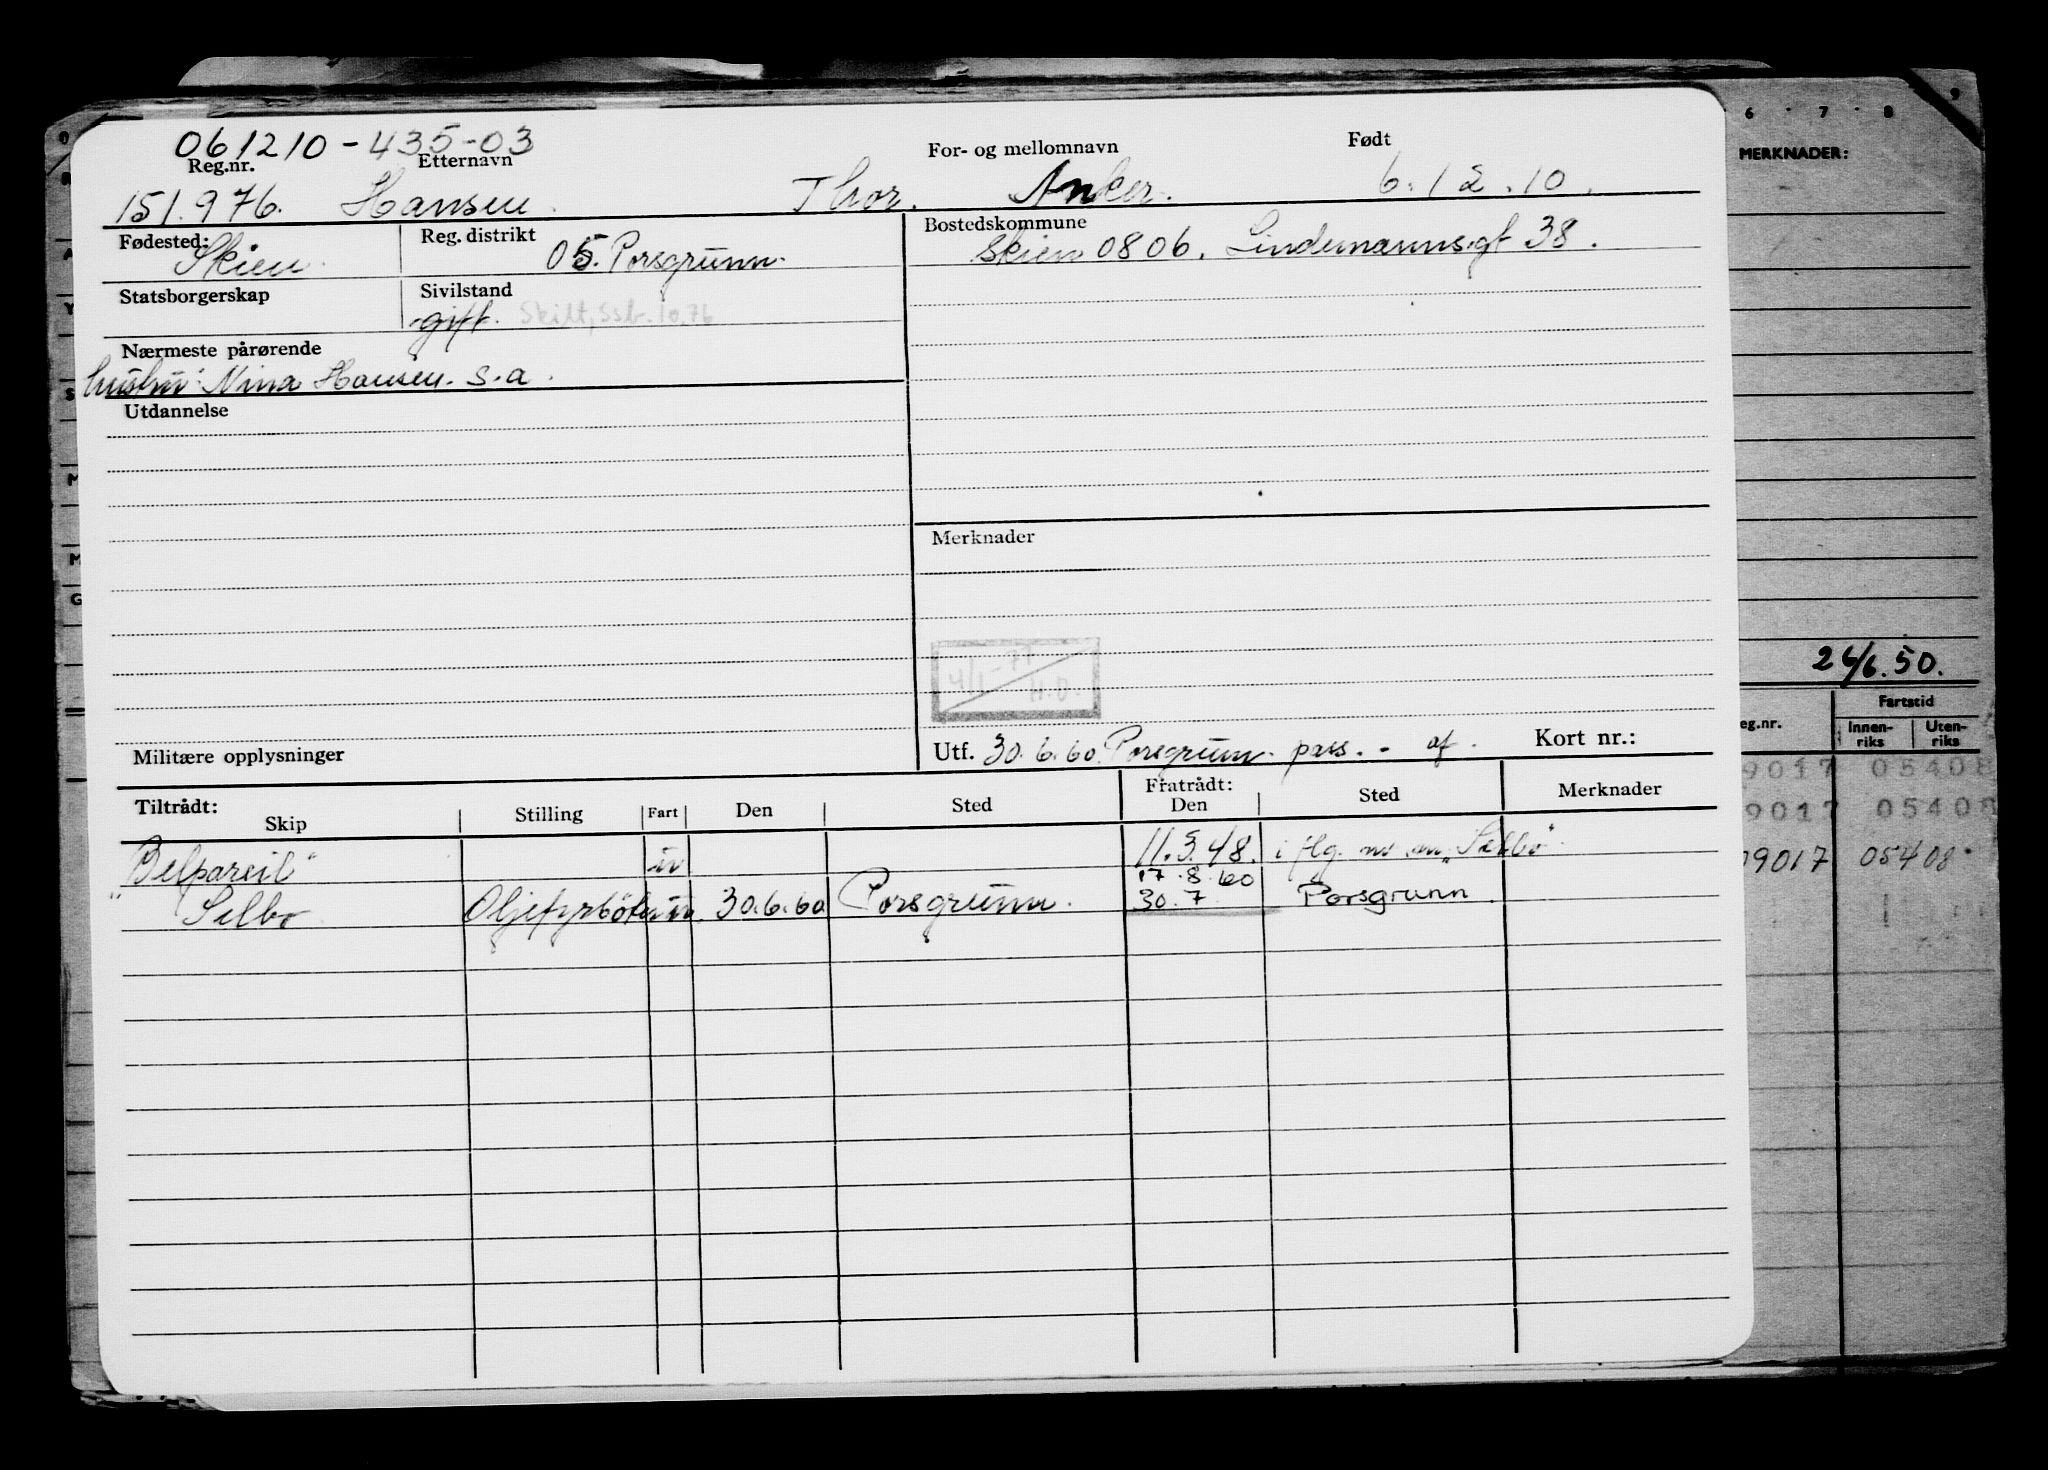 061210-435-03
Reg.nr. Etternavn For- og mellomnavn Født
151.976. Hansen. Thor. Anker. 6.12.10.
Fødested: Skien. Reg. distrikt 05. Porsgrunn. Bostedskommune Skien 0806. Lindemannsgt 38.
Statsborgerskap Sivilstand gift. Skilt, Ssb. 10.76
Nærmeste pårørende
hustru: Nina Hansen. s.a.
Utdannelse
Merknader
4/1-77 H.O.
Militære opplysninger
Utf. 30.6.60. Porsgrunn. pass. - af. Kort nr.:
Tiltrådt: Skip Stilling Fart Den Sted Fratrådt: Den Sted Merknader
"Belpareil" uv 11.3.48. i flg. m. av "Selbo"
17.8.60
"Selbo Oljefyrbøter uv. 30.6.60 Porsgrunn. 30.7 Porsgrunn.
6 7 8 9
MERKNADER:
26/6.50.
eg.nr. Fartstid
Innen-riks Uten-riks
9017 05408
9017 05408
09017 05408